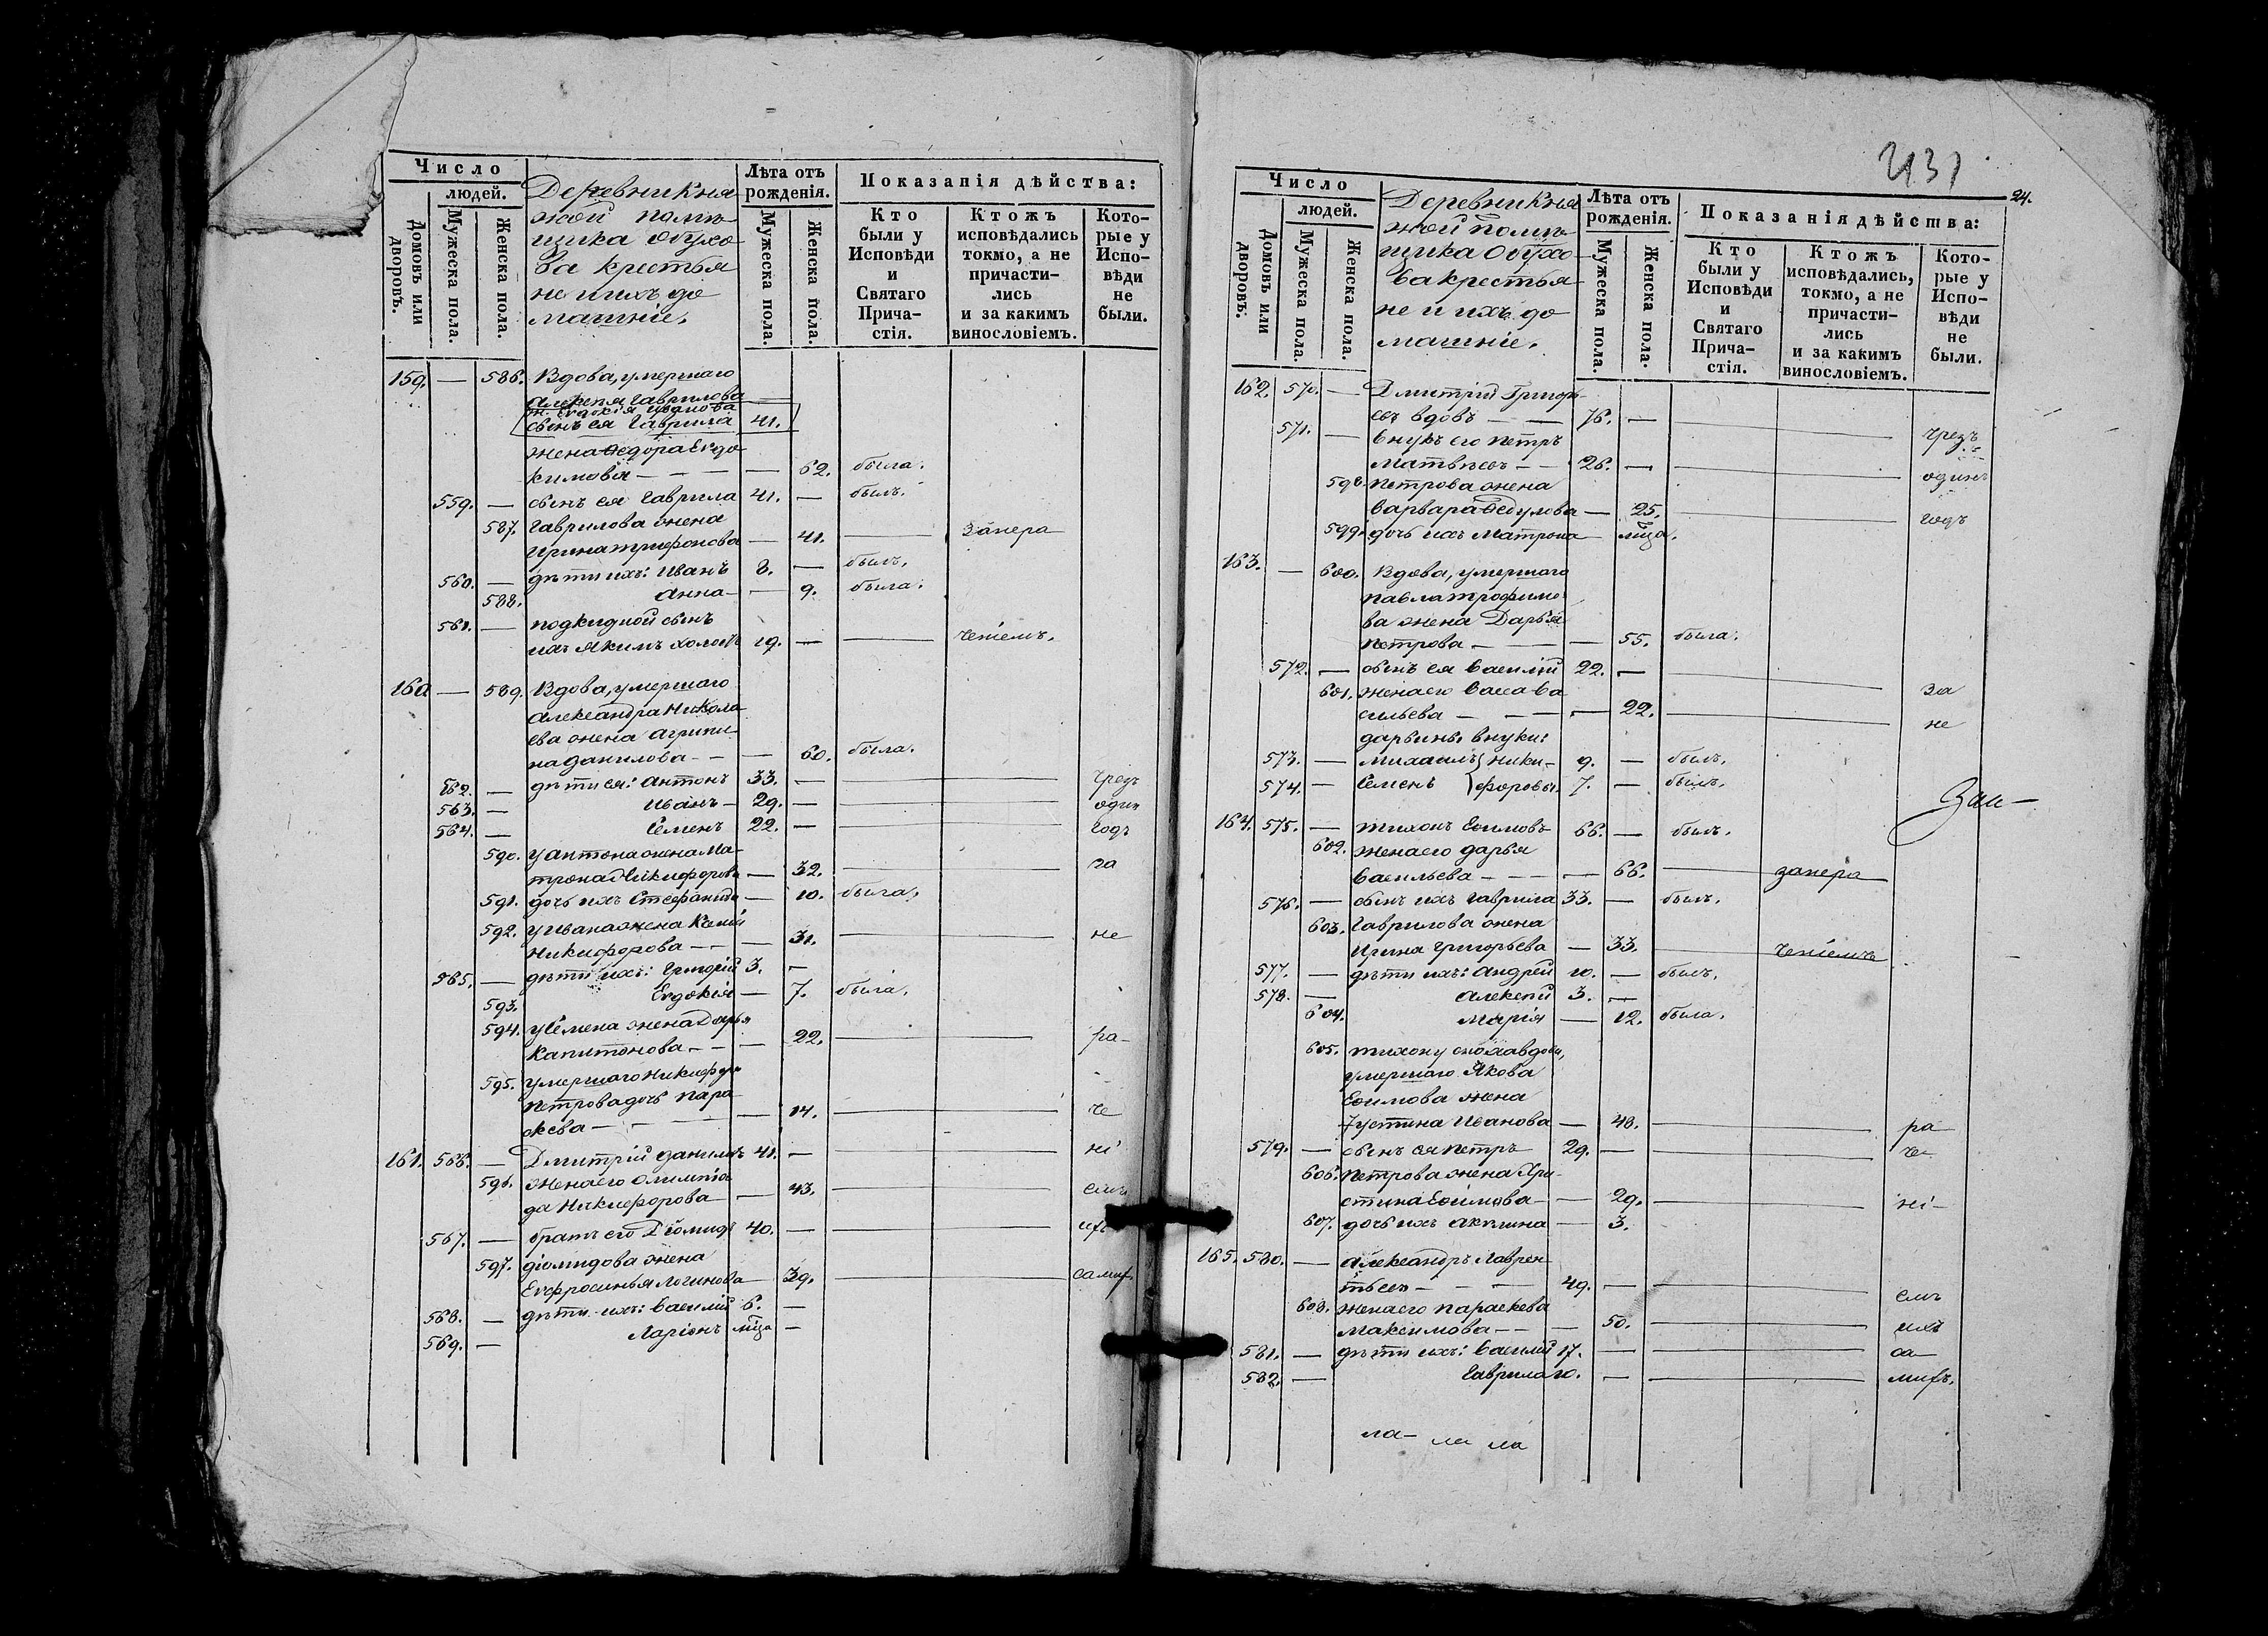 Число
людей.
Домовъ или дворовъ.
Мужеска пола.
Женска пола.
Деревни Княжной помѣщика Обухова крестьяне и ихъ домашніе.
Лѣта отъ рожденія.
Мужеска пола.
Женска пола.
Показанія дѣйства:
Кто были у Исповѣди и Святаго Причастія.
Ктожъ исповѣдались токмо, а не причастились и за какимъ винословіемъ.
Которые у Исповѣди не были.
159. — 586. Вдова, умершаго
Алексѣя Гаврилова
ж. Евдокія Иванова
сынъ ея Гаврила 41.
жена Ѳедора Евдо
кимова — — — — 62. была.
559. — сынъ ея Гаврила 41. — былъ.
587. Гаврилова жена
Ирина Трифонова — 41. — За нера
560. — дѣти ихъ: Иванъ 8. — былъ.
588. Анна — — 9. была.
561. — подкидной сынъ
ихъ Якимъ холостъ 19. — — ченіемъ.
160 — 589. Вдова, умершаго
Александра Никола
ева жена Агрипи
на Данилова — — 60. была.
562. — дѣти ея: Антонъ 33. — — чрезъ
563. — Иванъ — 29. — — один
564. — Семенъ 22. — — годъ
590. у Антона жена Ма-
трона Никифорова — 32. — за
591. дочь ихъ Стефанида — 10. была,
592. у Ивана жена
Никифорова — — — 31. — не
565. — дѣти ихъ: Григорій 3. —
593. Евдокія — 7. была.
594. у Семена жена Дарья
Капитонова — — — 22. — ра-
595. умершаго Никифора
Петрова дочь Пара
скева — — — 14. — че
161. 566. — Дмитрій Даниловъ 41. — — ні
596. жена его Олимпіа
да Никифорова — 43. — емъ
567. — братъ его Діомидъ 40. — — ихъ
597. Діомидова жена
Евфросинья Логинова — 39. — самих
568. — дѣти ихъ: Василій 6. —
569. — Ларіонъ мѣца —
2431
24.
Число
людей.
Домовъ или дворовъ.
Мужеска пола.
Женска пола.
Деревни Княжной помѣщика Обухова крестьяне и ихъ домашніе.
Лѣта отъ рожденія.
Мужеска пола.
Женска пола.
Показанія дѣйства:
Кто были у Исповѣди и Святаго Причастія.
Ктожъ исповѣдались, токмо, а не причастились и за какимъ винословіемъ.
Которые у Исповѣди не были.
162. 570. — Дмитрій Григорь-
евъ вдовъ — — 76. — — чрезъ
571. — внукъ его Петръ
Матвѣевъ — — 26. — — одинъ
598. Петрова жена
Варвара Ѳедулова — 25. — годъ
599. дочь ихъ Матрона — мѣца.
163. — 600. Вдова, умершаго
Павла Трофимо
ва жена Дарья
Петрова — — — 55. была.
572. — сынъ ея Василій 22. — — за
601. жена его Васса Ва
сильева — — — 22. — не
Дарьины внуки:
573. — Михаилъ } Ники- 9. — былъ.
574. — Семенъ } форовы. 7. — былъ.
Заи-
164. 575. — Тихонъ Еѳимовъ 66. — былъ.
602. жена его Дарья
Васильева — — — 66. — за нера
576. — сынъ ихъ Гаврила 33. — былъ.
603. Гаврилова жена
Ирина Григорьева — 33. — ченіемъ
577. — дѣти ихъ: Андрей 10. — былъ.
578. — Алексѣй 3. —
604. Марія — 12. была.
605. Тихону сноха вдова,
умершаго Якова
Еѳимова жена
Устина Иванова — 48. — ра
579. — сынъ ея Петръ 29. — — че-
606. Петрова жена Хри-
стина Еѳимова — 29. — ні-
607. дочь ихъ Акилина — 3.
165. 580. — Александръ Лаврен
тьевъ — — — 49. — — емъ
608. жена его Параскева
Максимова — — — 50. — ихъ
581. — дѣти ихъ: Василій 17. — — са-
582. — Гаврила 10. — — михъ.
ла- ла ла